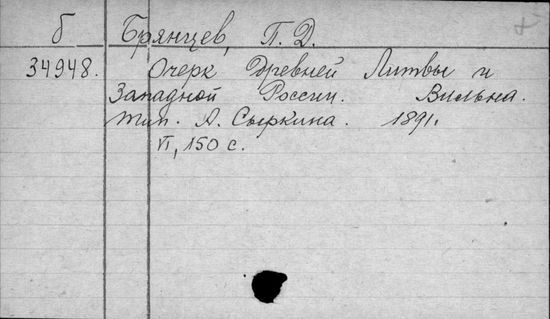 б Брянцев, П. Д.
34948. Очерк Древней Литвы и
Западной России. Вильна.
тип. А. Сыркина. 1891.
VI, 150 с.